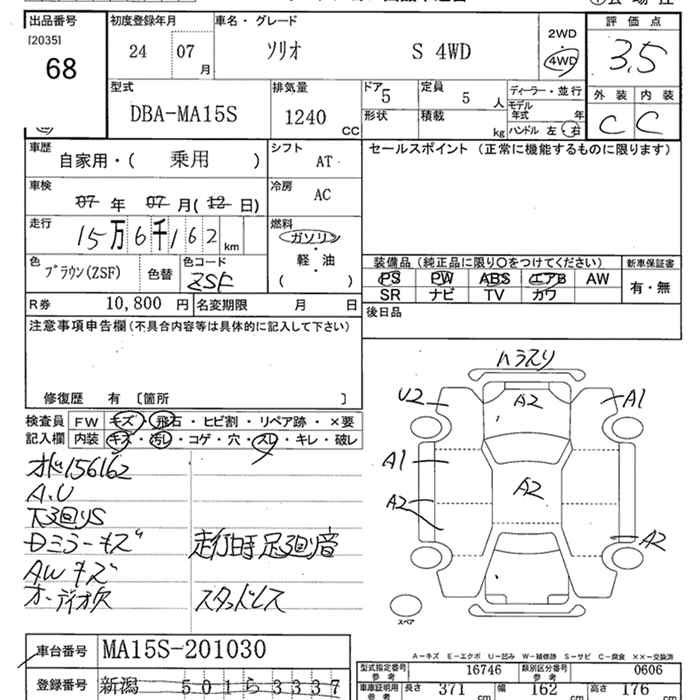 出品番号
[2035]
68
初度登録年月
24 07 月
車名・グレード
ソリオ S 4WD
2WD
4WD
評価点
3.5
型式
DBA-MA15S
排気量
1240 CC
ドア
5
定員
5 人
ディーラー・並行
モデル
年式 年
形状
積載
kg
ハンドル 左・右
外装 内装
C C
車歴
自家用・( 乗用 )
シフト
AT
セールスポイント (正常に機能するものに限ります)
車検
07 年 07 月(12 日)
冷房
AC
走行
15万6千162 km
燃料
ガソリン
・
軽・油
( )
色
ブラウン(ZSF)
色替
色コード
ZSF
装備品 (純正品に限り○をつけてください)
新車保証書
PS PW ABS エアB AW
SR ナビ TV カワ
有・無
R券 10,800 円
名変期限 月 日
後日品
注意事項申告欄(不具合内容等は具体的に記入して下さい)
修復歴 有 [箇所 ]
検査員
記入欄
FW キズ・飛石・ヒビ割・リペア跡・×要
内装 キズ・汚レ・コゲ・穴・スレ・キレ・破レ
オド156162
A.U
下廻りS
Dミラーキズ
走行時足廻り音
AWキズ
オーディオ欠
スタッドレス
ハラスリ
U2 A2 A1
A1
A2
A2
A2
スペア
A-キズ E-エクボ U-凹み W-補修跡 S-サビ C-腐食 ××-交換済
車台番号 MA15S-201030
型式指定番号
参考
16746
類別区分番号
参考
0606
登録番号 新潟 501 ら 3337
車庫証明用
参考
長さ 371 cm
幅 162 cm
高さ 176 cm